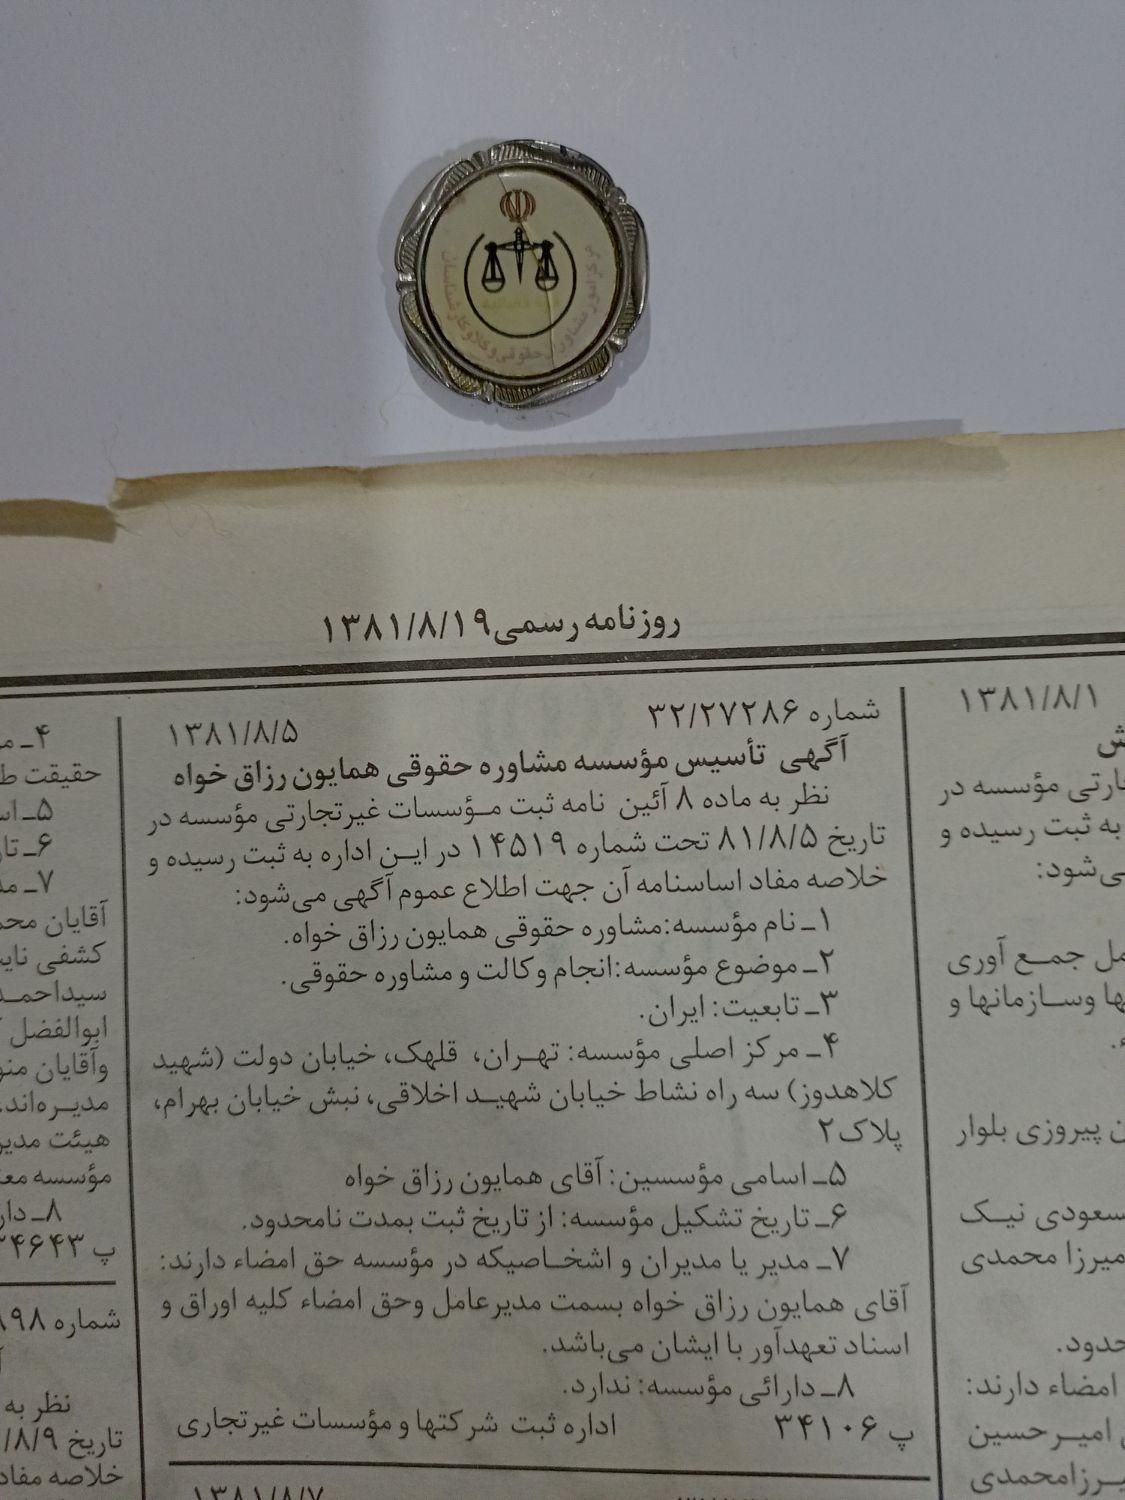 مرکز امور مشاوران حقوقی وکلا و کارشناسان
قوه قضائیه
روزنامه رسمی ۱۳۸۱/۸/۱۹
۱۳۸۱/۸/۱
ش
ارتی مؤسسه در
به ثبت رسیده و
ی‌شود:
مل جمـع آوری
ها وسـازمانها و
ء.
ن پیروزی بلوار
سعودی نیـک
میرزا محمدی
حدود.
امضاء دارند:
امیـرحسین
یـرزامحمدی
شماره ۳۲/۲۷۲۸۶ ۱۳۸۱/۸/۵
آگهی تأسیس مؤسسه مشاوره حقوقی همایون رزاق خواه
نظر به ماده ۸ آئین نامه ثبت مـؤسسات غیرتجارتی مؤسسه در
تاریخ ۸۱/۸/۵ تحت شماره ۱۴۵۱۹ در ایـن اداره به ثبت رسیده و
خلاصه مفاد اساسنامه آن جهت اطلاع عموم آگهی می‌شود:
۱ـ نام مؤسسه:مشاوره حقوقی همایون رزاق خواه.
۲ـ موضوع مؤسسه:انجام وکالت و مشاوره حقوقی.
۳ـ تابعیت: ایران.
۴ـ مرکز اصلی مؤسسه: تهـران، قلهک، خیابان دولت (شهید
کلاهدوز) سه راه نشاط خیابان شهیـد اخلاقی، نبش خیابان بهرام،
پلاک ۲
۵ـ اسامی مؤسسین: آقای همایون رزاق خواه
۶ـ تاریخ تشکیل مؤسسه: از تاریخ ثبت بمدت نامحدود.
۷ـ مدیر یا مدیران و اشخـاصیکه در مؤسسه حق امضاء دارند:
آقای همایون رزاق خواه بسمت مدیرعامل وحق امضاء کلیه اوراق و
اسناد تعهدآور با ایشان می‌باشد.
۸ـ دارائی مؤسسه: ندارد.
پ ۳۴۱۰۶ اداره ثبت شرکتها و مؤسسات غیرتجاری
۱۳۸۱/۸/۷
۴ـ مر
حقیقت ط
۵ـ اس
۶ـ تار
۷ـ مد
آقایان محم
کشفی نایب
سیداحمـد
ابوالفضل
وآقایان منو
مدیـره‌اند.
هیئت مدیر
مؤسسه مع
۸ـ دار
پ ۳۴۶۴۳
شماره ۸۹۸
نظر به
تاریخ ۸/۹/
خلاصه مفاد